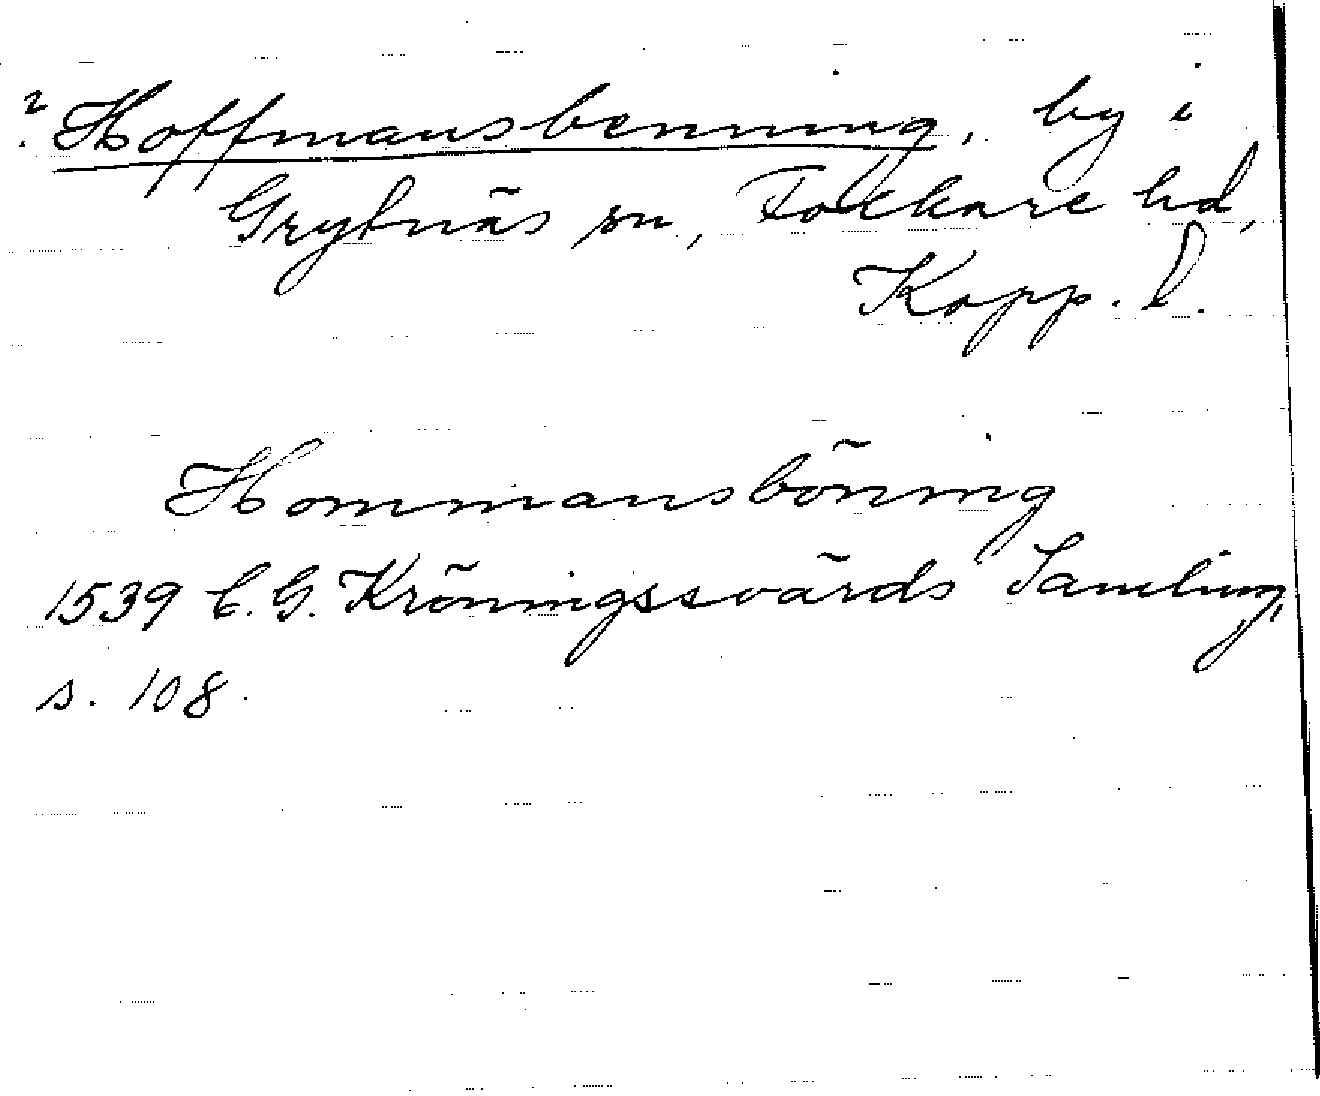 ? Hoffmansbenning, by i
Grytnäs sn, Folkare hd,
Kopp. l.
Hommansböning
1539 C. G. Kröningssvärds Samling,
s. 108.